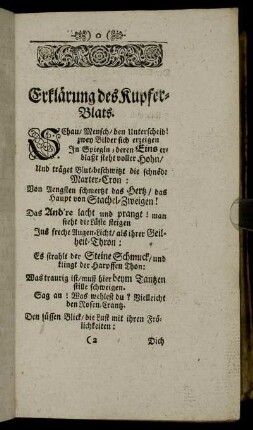 -)( o )(-
Erklärung des Kupfer-
Blats.
Schau/ Mensch/ den Unterscheid!
zwey Bilder sich erzeigen
In Spiegln/ deren Eins er-
blaßt steht voller Hohn/
Und träget Blut-beschwitzt die schnöde
Marter-Cron:
Von Aengsten schmertzt das Hertz/ das
Haupt von Stachel-Zweigen!
Das And're lacht und prangt! man
sieht die Lüste steigen
Ins freche Augen-Licht/ als ihrer Geil-
heit-Thron:
Es strahlt der Steine Schmuck/ und
klingt der Harpffen Thon:
Was traurig ist/ muß hier beym Tantzen
stille schweigen.
Sag an! Was wehlest du? Vielleicht
den Rosen-Crantz.
Den süssen Blick/ die Lust mit ihren Frö-
lichkeiten:
(2
Dich